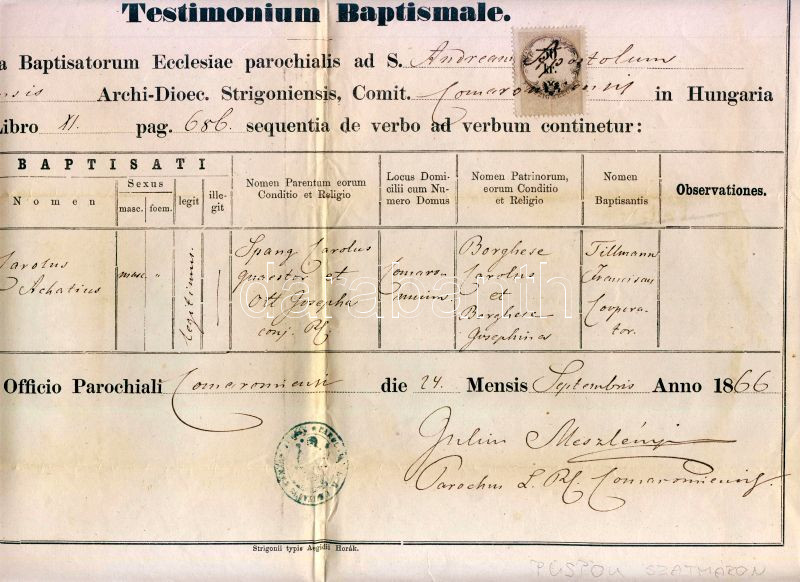 Testimonium Baptismale.
a Baptisatorum Ecclesiae parochialis ad S. Andream Apostolum
ensis Archi-Dioec. Strigoniensis, Comit. Comaromiensis in Hungaria
Libro XI. pag. 686. sequentia de verbo ad verbum continetur:
BAPTISATI
Nomen
Sexus
masc. foem.
legit
ille-
git
Nomen Parentum eorum
Conditio et Religio
Locus Domi-
cilii cum Nu-
mero Domus
Nomen Patrinorum,
eorum Conditio
et Religio
Nomen
Baptisantis
Observationes.
Carolus
Achatius
masc.
"
legitimus.
Spang Carolus
quaestor et
Ott Josepha
conj. RC
Comaro-
mium.
Borghese
Carolus
et
Borghese
Josephina
Tillmann
Franciscus
Coopera-
tor.
Officio Parochiali Comaromiensi die 24. Mensis Septembris Anno 1866
Julius Meszlényi
Parochus L. RC. Comaromiensis.
Strigonii typis Aegidii Horák.
PÜSPÖK SZATMÁRON
darabanth